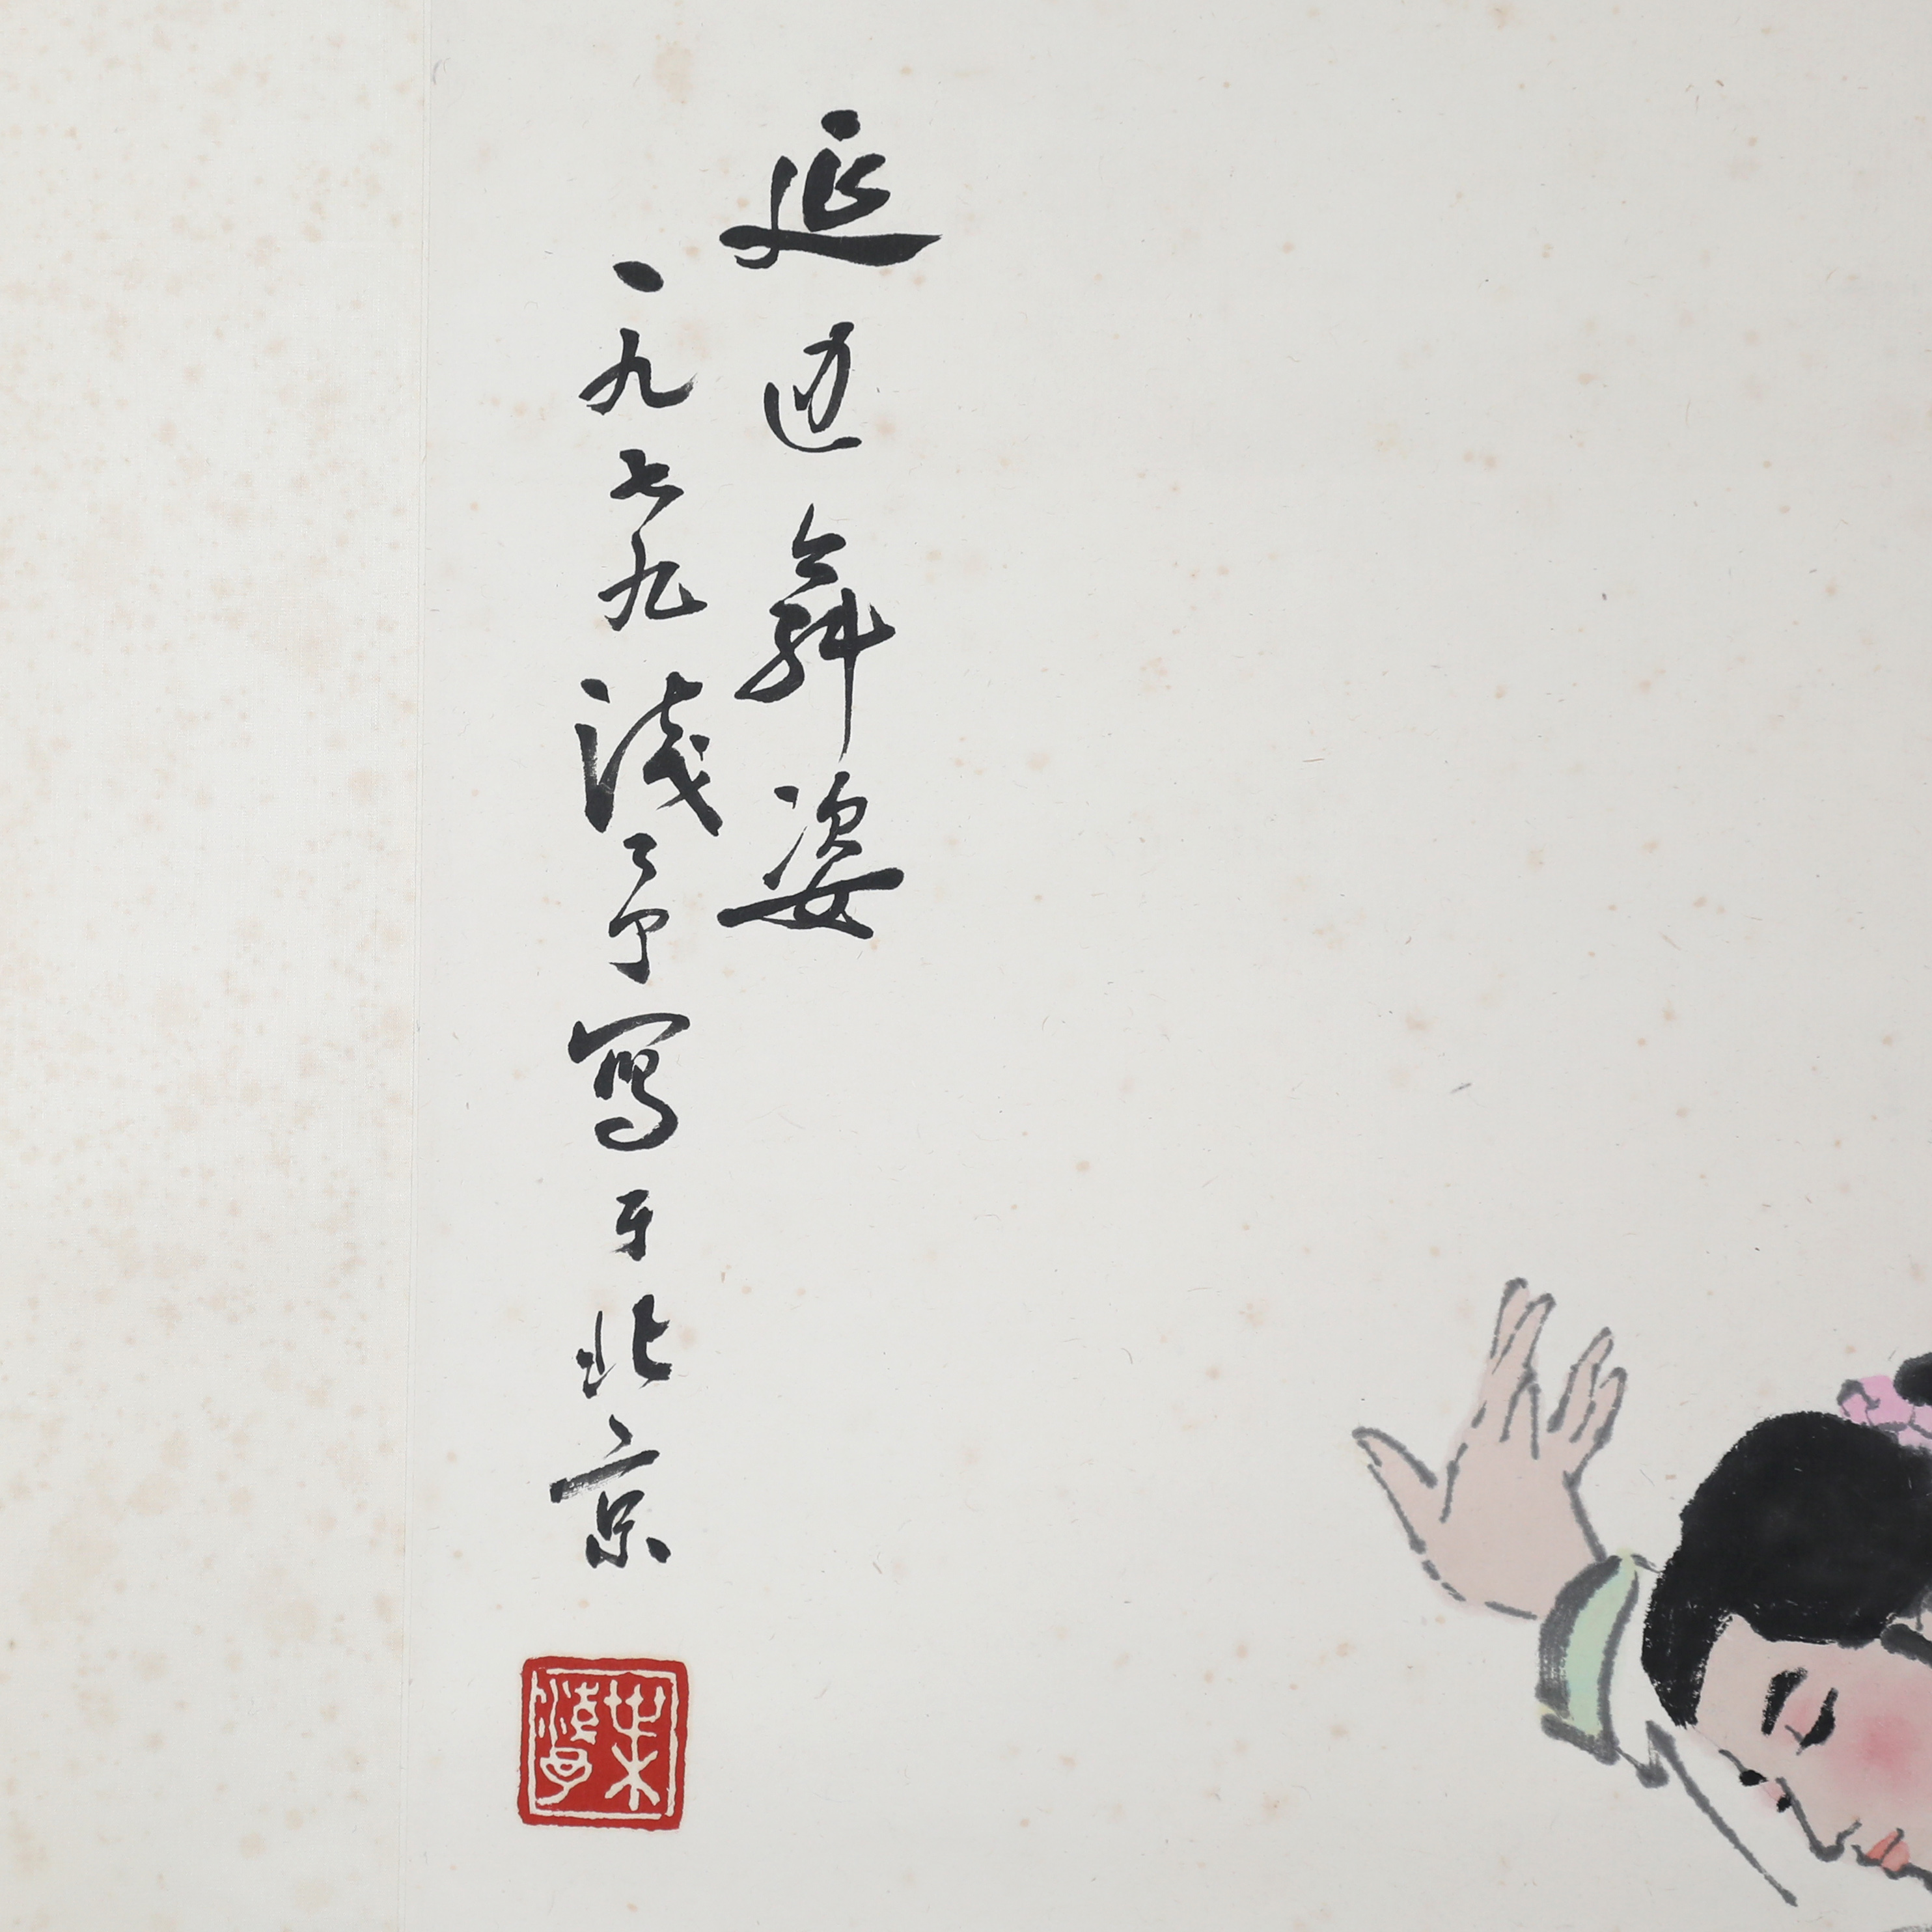 延边舞姿
一九七九浅予写于北京
葉浅予